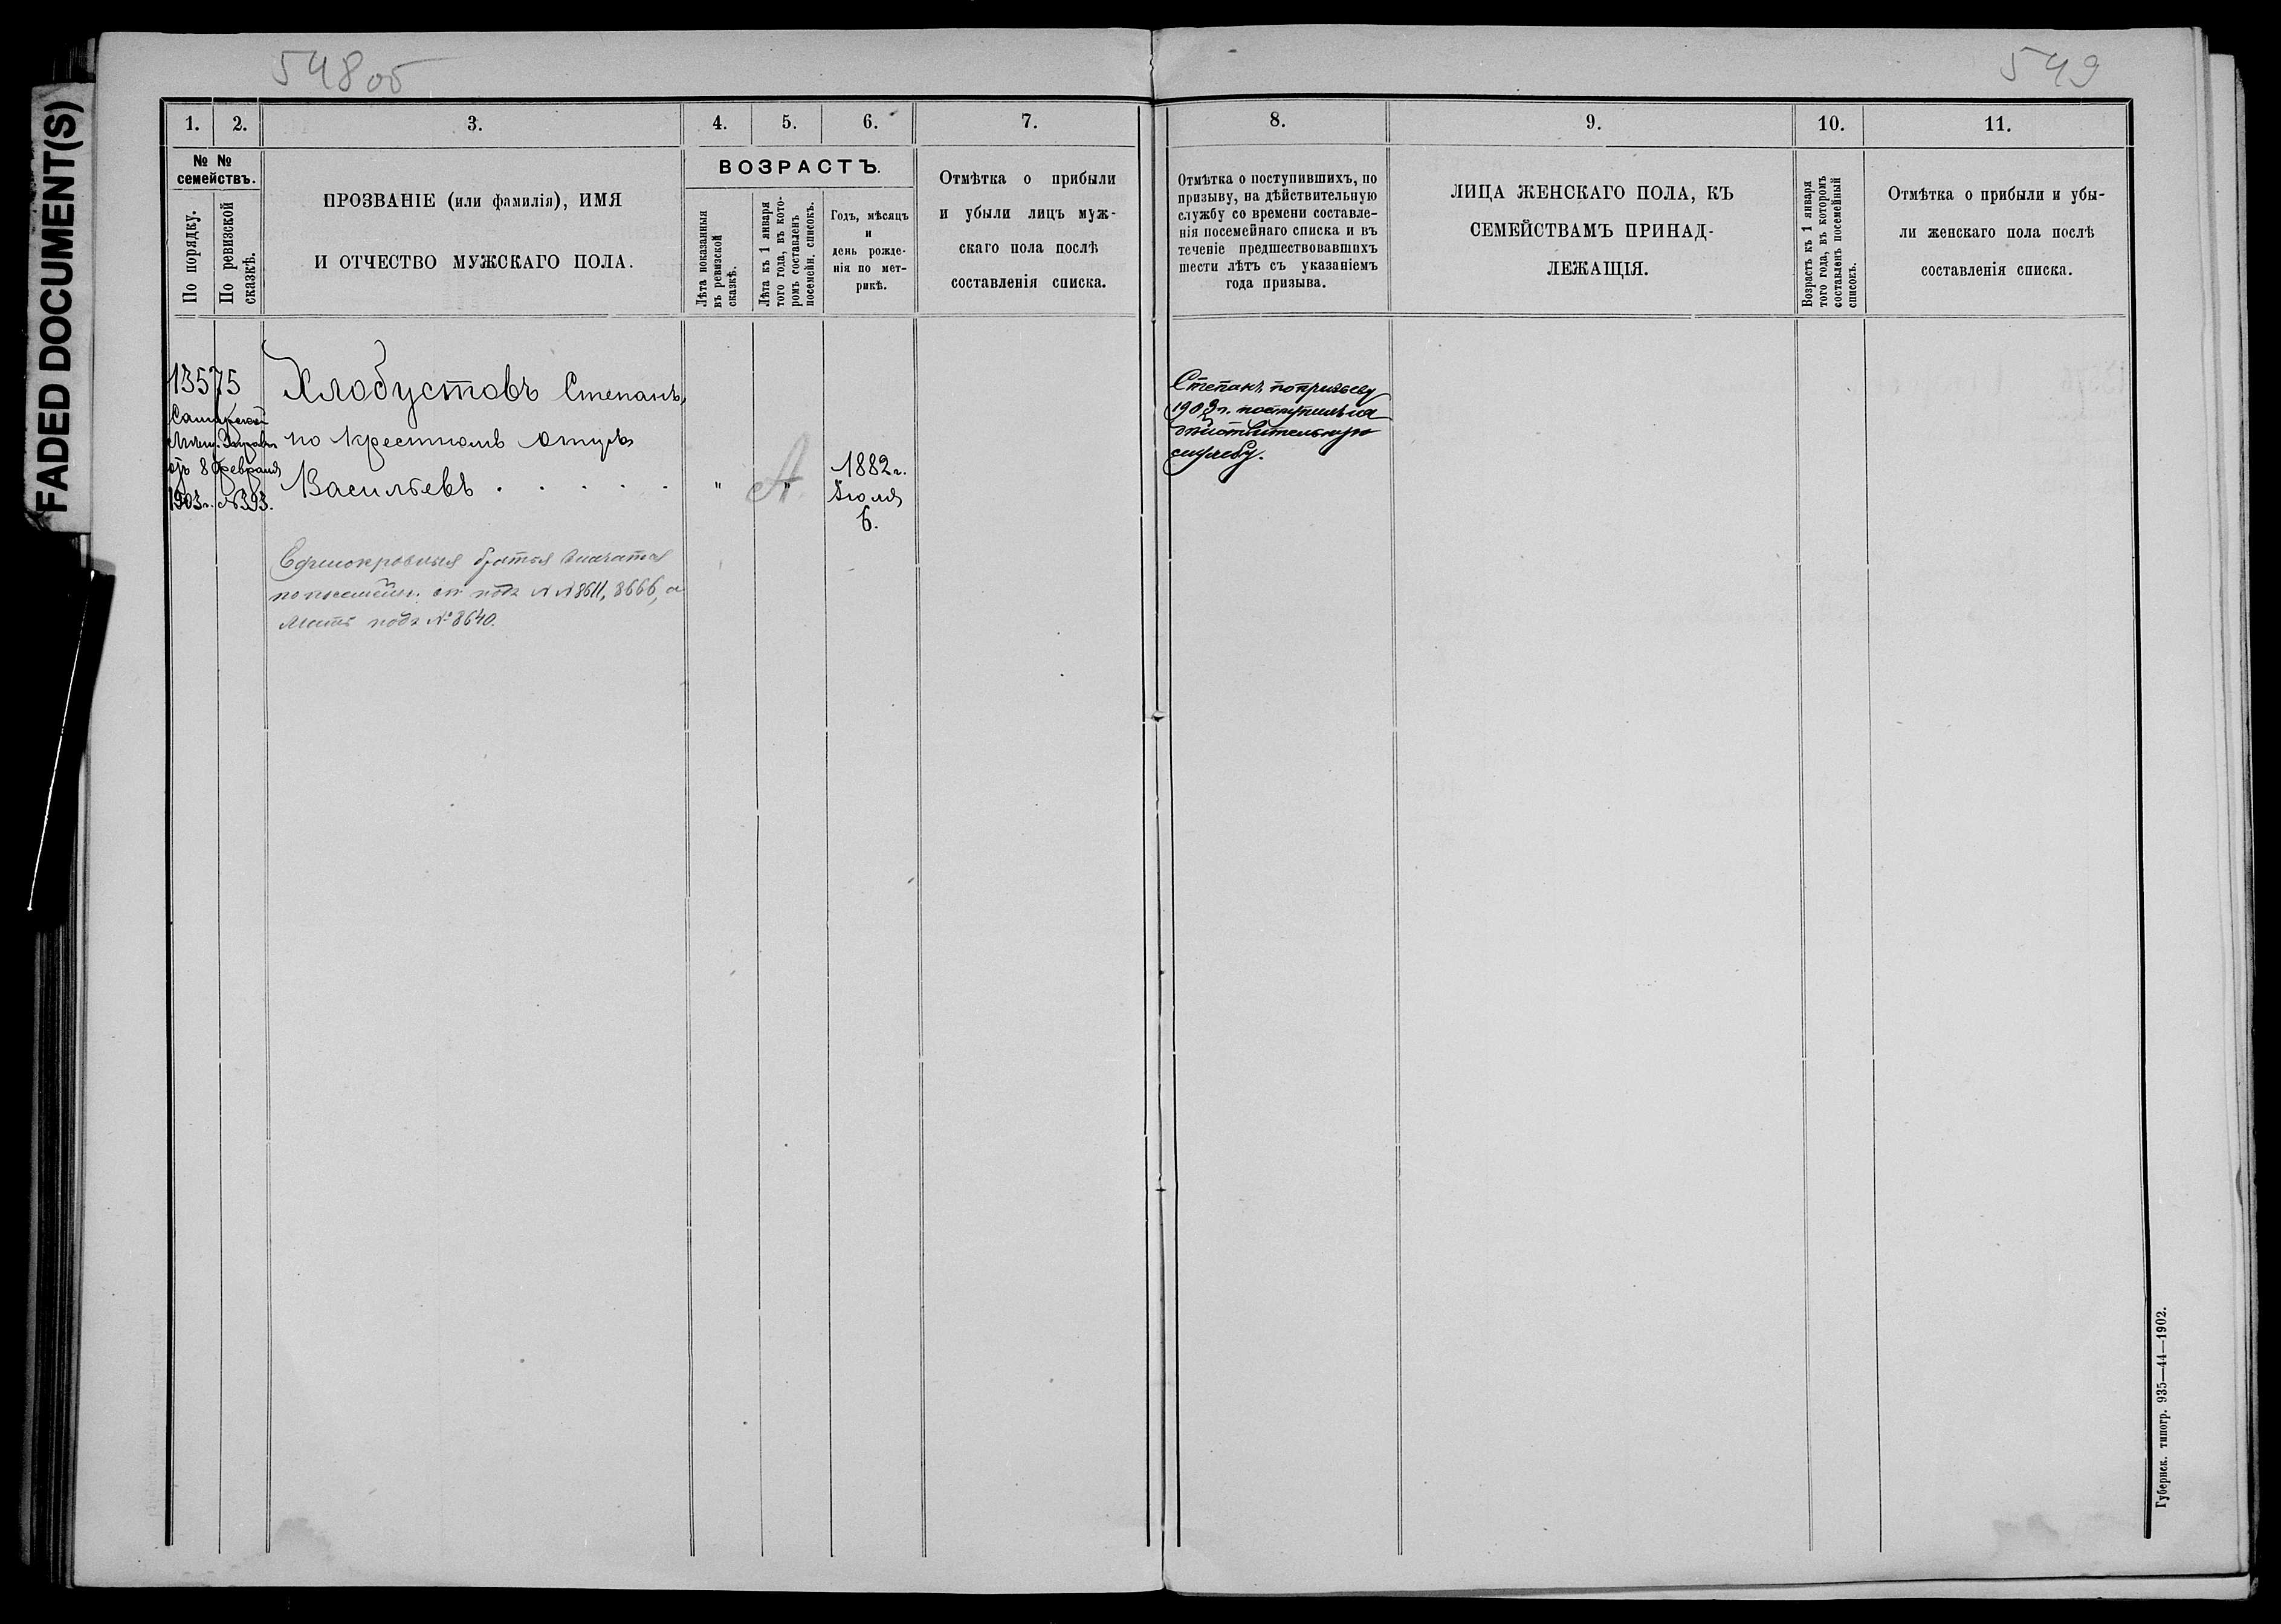 548об
549
FADED DOCUMENT(S)
1.
2.
3.
4.
5.
6.
7.
№ №
семействъ.
По порядку.
По ревизской
сказкѣ.
ПРОЗВАНІЕ (или фамилія), ИМЯ
И ОТЧЕСТВО МУЖСКАГО ПОЛА.
ВОЗРАСТЪ.
Лѣта показанныя
въ ревизской
сказкѣ.
Лѣта къ 1 января
того года, въ кото-
ромъ составленъ
посемейн. списокъ.
Годъ, мѣсяцъ
и
день рожде-
нія по мет-
рикѣ.
Отмѣтка о прибыли
и убыли лицъ муж-
скаго пола послѣ
составленія списка.
13575
Самарской
Мѣщ. Управы
отъ 8 февраля
1903г. №393.
Хлобустовъ Степанъ,
по крестномъ отцѣ
Васильевъ . . . . .
"
А "
1882г.
Іюля
6.
Единокровныя братья значатся
по посемейн. сп. подъ №№8611, 8666, а
Мать подъ №8640.
8.
9.
10.
11.
Отмѣтка о поступившихъ, по
призыву, на дѣйствительную
службу со времени составле-
нія посемейнаго списка и въ
теченіе предшествовавшихъ
шести лѣтъ съ указаніемъ
года призыва.
ЛИЦА ЖЕНСКАГО ПОЛА, КЪ
СЕМЕЙСТВАМЪ ПРИНАД-
ЛЕЖАЩІЯ.
Возрастъ къ 1 января
того года, въ которомъ
составленъ посемейный
списокъ.
Отмѣтка о прибыли и убы-
ли женскаго пола послѣ
составленія списка.
Степанъ по призыву
1903г. поступилъ на
дѣйствительную
службу.
Губернск. типогр. 935—44—1902.